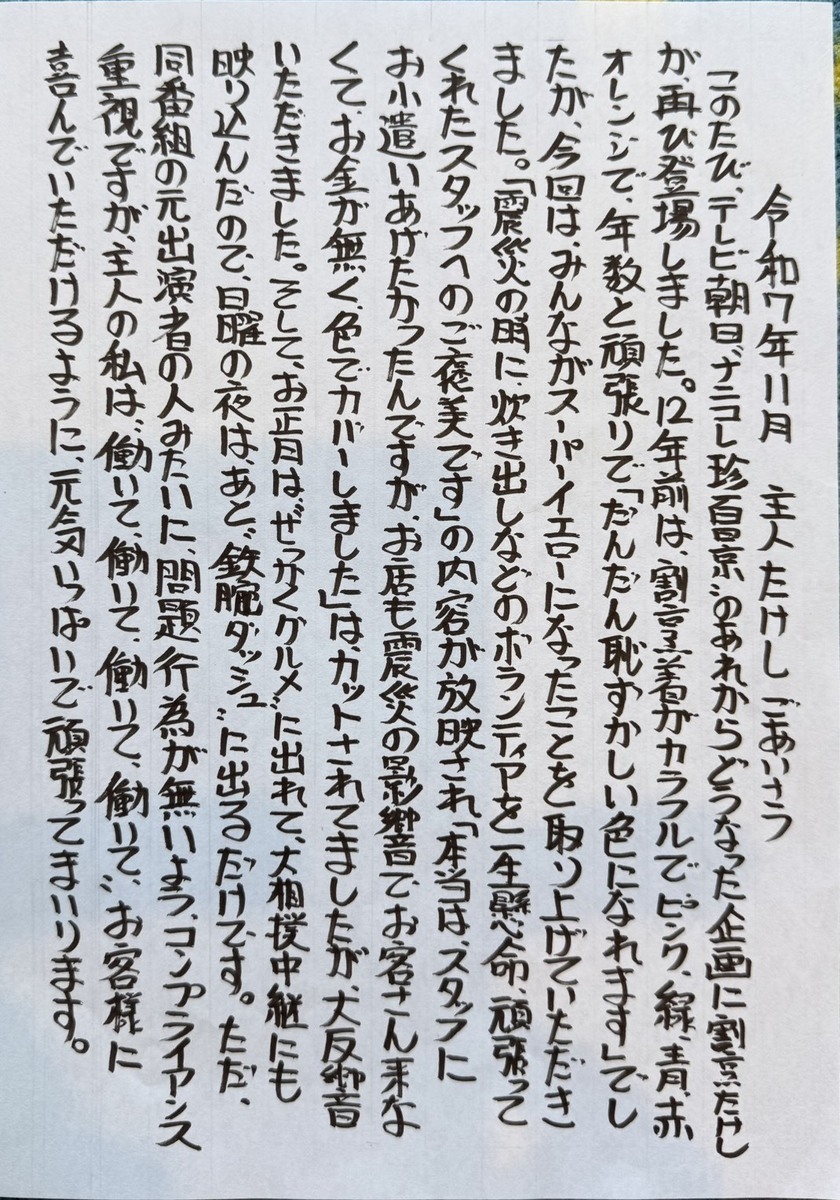 令和7年11月　主人たけし ごあいさつ
このたび、テレビ朝日〝ナニコレ珍百景〟のあれからどうなった企画に割烹たけし
が、再び登場しました。12年前は、割烹着がカラフルでピンク、緑、青、赤
オレンジで、年数と頑張りで「だんだん恥ずかしい色になれます」でし
たが、今回は、みんながスーパーイエローになったことを取り上げていただき
ました。「震災の時に、炊き出しなどのボランティアを一生懸命、頑張って
くれたスタッフへのご褒美です」の内容が放映され「本当は、スタッフに
お小遣いあげたかったんですが、お店も震災の影響でお客さん来な
くて、お金が無く、色でカバーしました」は、カットされてましたが、大反響
いただきました。そして、お正月は〝ぜっかくグルメ〟に出れて、大相撲中継にも
映り込んだので、日曜の夜は、あと〝鉄腕ダッシュ〟に出るだけです。ただ、
同番組の元出演者の人みたいに、問題行為が無いよう、コンプライアンス
重視ですが、主人の私は〝働いて、働いて、働いて、働いて〟お客様に
喜んでいただけるように、元気いっぱいで頑張ってまいります。